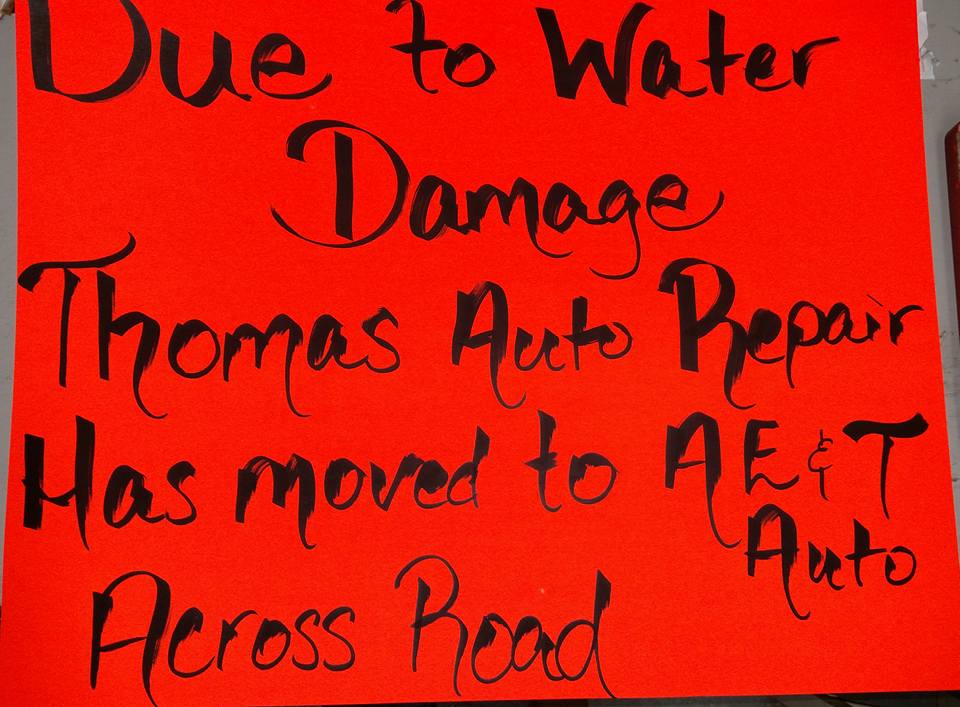 Due to Water
Damage
Thomas Auto Repair
Has moved to AE & T
Auto
Across Road